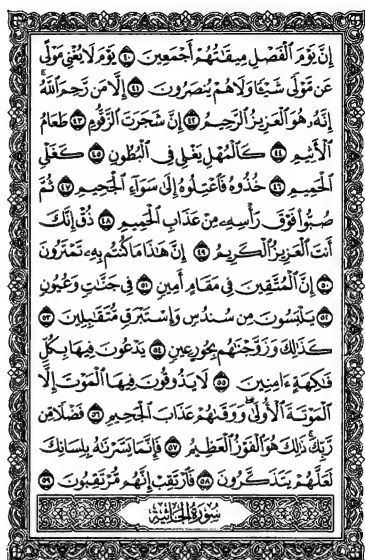 إِنَّ يَوْمَ ٱلْفَصْلِ مِيقَٰتُهُمْ أَجْمَعِينَ ٤٠ يَوْمَ لَا يُغْنِي مَوْلًى
عَن مَّوْلًى شَيْـًٔا وَلَا هُمْ يُنصَرُونَ ٤١ إِلَّا مَن رَّحِمَ ٱللَّهُ
إِنَّهُۥ هُوَ ٱلْعَزِيزُ ٱلرَّحِيمُ ٤٢ إِنَّ شَجَرَتَ ٱلزَّقُّومِ ٤٣ طَعَامُ
ٱلْأَثِيمِ ٤٤ كَٱلْمُهْلِ يَغْلِي فِي ٱلْبُطُونِ ٤٥ كَغَلْيِ
ٱلْحَمِيمِ ٤٦ خُذُوهُ فَٱعْتِلُوهُ إِلَىٰ سَوَآءِ ٱلْجَحِيمِ ٤٧ ثُمَّ
صُبُّوا۟ فَوْقَ رَأْسِهِۦ مِنْ عَذَابِ ٱلْحَمِيمِ ٤٨ ذُقْ إِنَّكَ
أَنتَ ٱلْعَزِيزُ ٱلْكَرِيمُ ٤٩ إِنَّ هَٰذَا مَا كُنتُم بِهِۦ تَمْتَرُونَ
٥٠ إِنَّ ٱلْمُتَّقِينَ فِي مَقَامٍ أَمِينٍ ٥١ فِي جَنَّٰتٍ وَعُيُونٍ
٥٢ يَلْبَسُونَ مِن سُندُسٍ وَإِسْتَبْرَقٍ مُّتَقَٰبِلِينَ ٥٣
كَذَٰلِكَ وَزَوَّجْنَٰهُم بِحُورٍ عِينٍ ٥٤ يَدْعُونَ فِيهَا بِكُلِّ
فَٰكِهَةٍ ءَامِنِينَ ٥٥ لَا يَذُوقُونَ فِيهَا ٱلْمَوْتَ إِلَّا
ٱلْمَوْتَةَ ٱلْأُولَىٰ وَوَقَىٰهُمْ عَذَابَ ٱلْجَحِيمِ ٥٦ فَضْلًا مِّن
رَّبِّكَ ذَٰلِكَ هُوَ ٱلْفَوْزُ ٱلْعَظِيمُ ٥٧ فَإِنَّمَا يَسَّرْنَٰهُ بِلِسَانِكَ
لَعَلَّهُمْ يَتَذَكَّرُونَ ٥٨ فَٱرْتَقِبْ إِنَّهُم مُّرْتَقِبُونَ ٥٩
سُورَةُ الجَاثِيَةِ